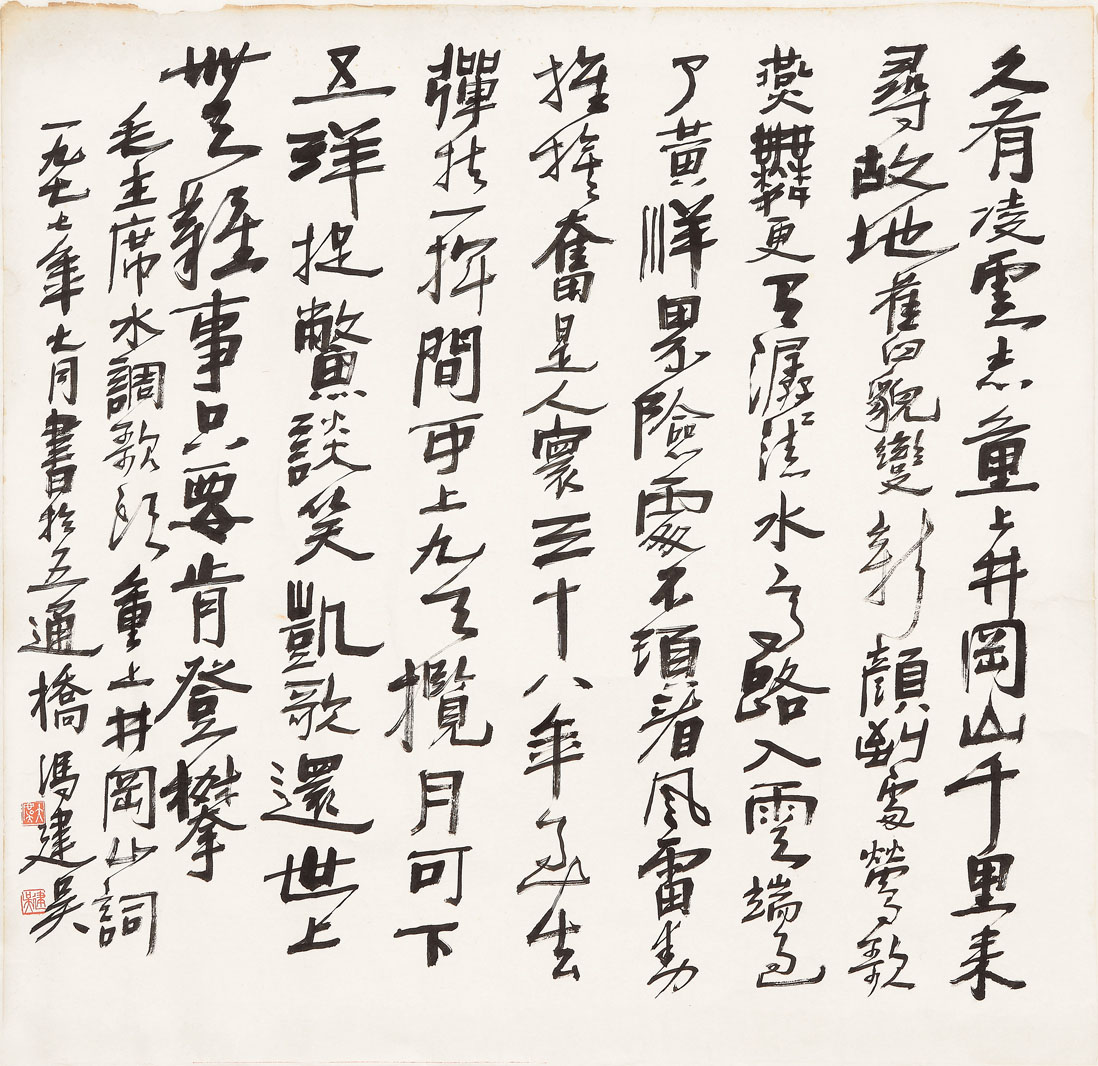 久有凌雲志重上井岡山千里来
尋故地舊貌變新顔到處鶯歌
燕舞更有潺潺流水高路入雲端過
了黃洋界險處不須看風雷動
旌旗奮是人寰三十八年過去
彈指一揮間可上九天攬月可下
五洋捉鱉談笑凱歌還世上
無難事只要肯登攀
毛主席水調歌頭重上井岡山詞
一九七七年七月書於五通橋馮建吳
建吳